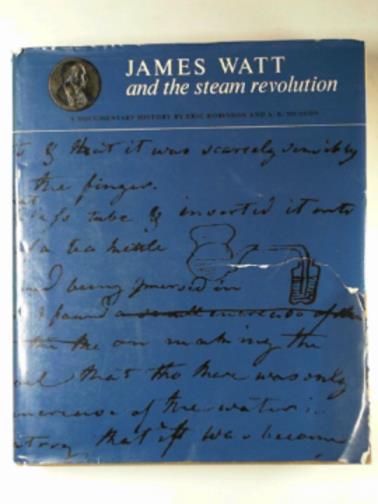 JAMES WATT
and the steam revolution
A DOCUMENTARY HISTORY BY ERIC ROBINSON AND A. E. MUSSON
& that it was scarcely sensibly
the finger.
tube & inserted it into
a tea kettle
and being immersed in
I found a small increase of the
the on making the
that the here was only
increase of the water
that it was become